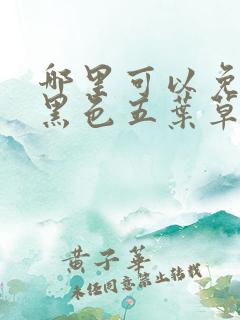 哪里可以免
黑色五葉草
黄子華
未经同意禁止转载